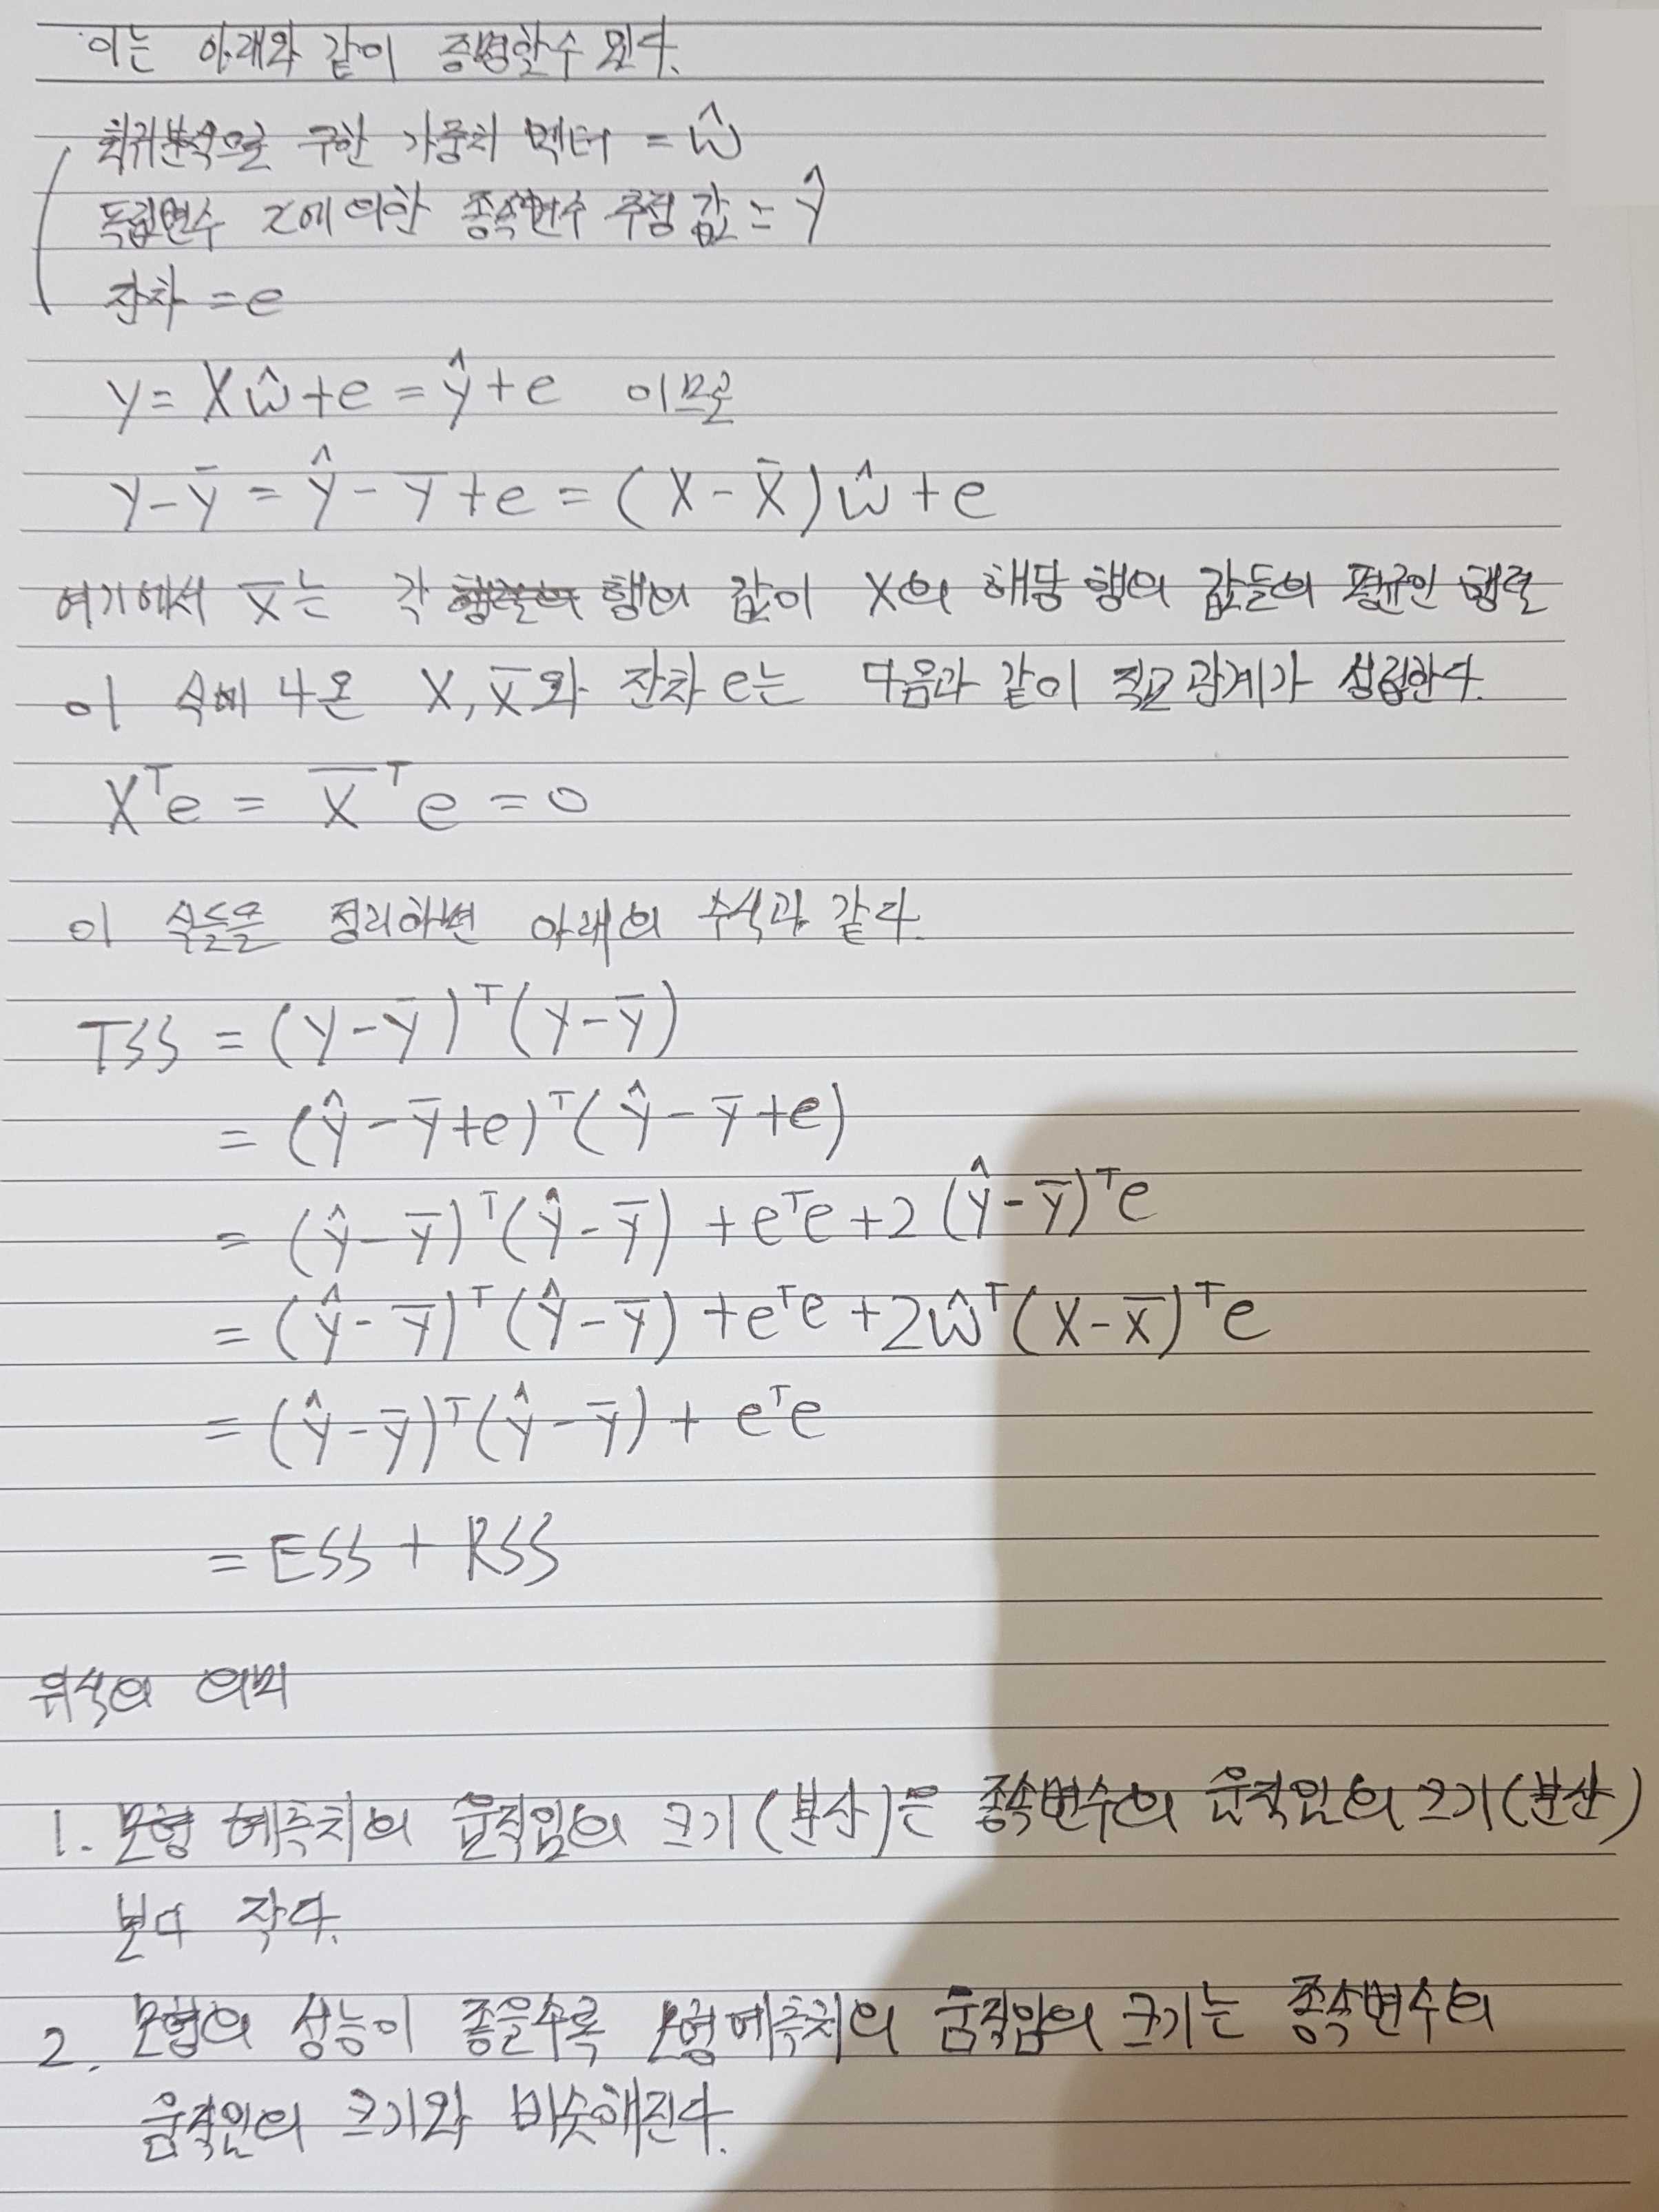 이는 아래와 같이 증명할수 있다.
회귀분석으로 구한 가중치 벡터 = ŵ
독립변수 x에 의한 종속변수 추정 값 = ŷ
잔차 = e
y = Xŵ + e = ŷ + e 이므로
y - ȳ = ŷ - ȳ + e = (X - X̄)ŵ + e
여기에서 X̄는 각 행의 값이 X의 해당 행의 값들의 평균인 행렬
이 식에 나온 X, X̄와 잔차 e는 다음과 같이 직교 관계가 성립한다.
Xᵀe = X̄ᵀe = 0
이 식들을 정리하면 아래의 수식과 같다.
TSS = (y - ȳ)ᵀ(y - ȳ)
= (ŷ - ȳ + e)ᵀ(ŷ - ȳ + e)
= (ŷ - ȳ)ᵀ(ŷ - ȳ) + eᵀe + 2(ŷ - ȳ)ᵀe
= (ŷ - ȳ)ᵀ(ŷ - ȳ) + eᵀe + 2ŵᵀ(X - X̄)ᵀe
= (ŷ - ȳ)ᵀ(ŷ - ȳ) + eᵀe
= ESS + RSS
위식의 의미
1. 모형 예측치의 움직임의 크기(분산)은 종속변수의 움직임의 크기(분산)
보다 작다.
2. 모형의 성능이 좋을수록 모형예측치의 움직임의 크기는 종속변수의
움직임의 크기와 비슷해진다.